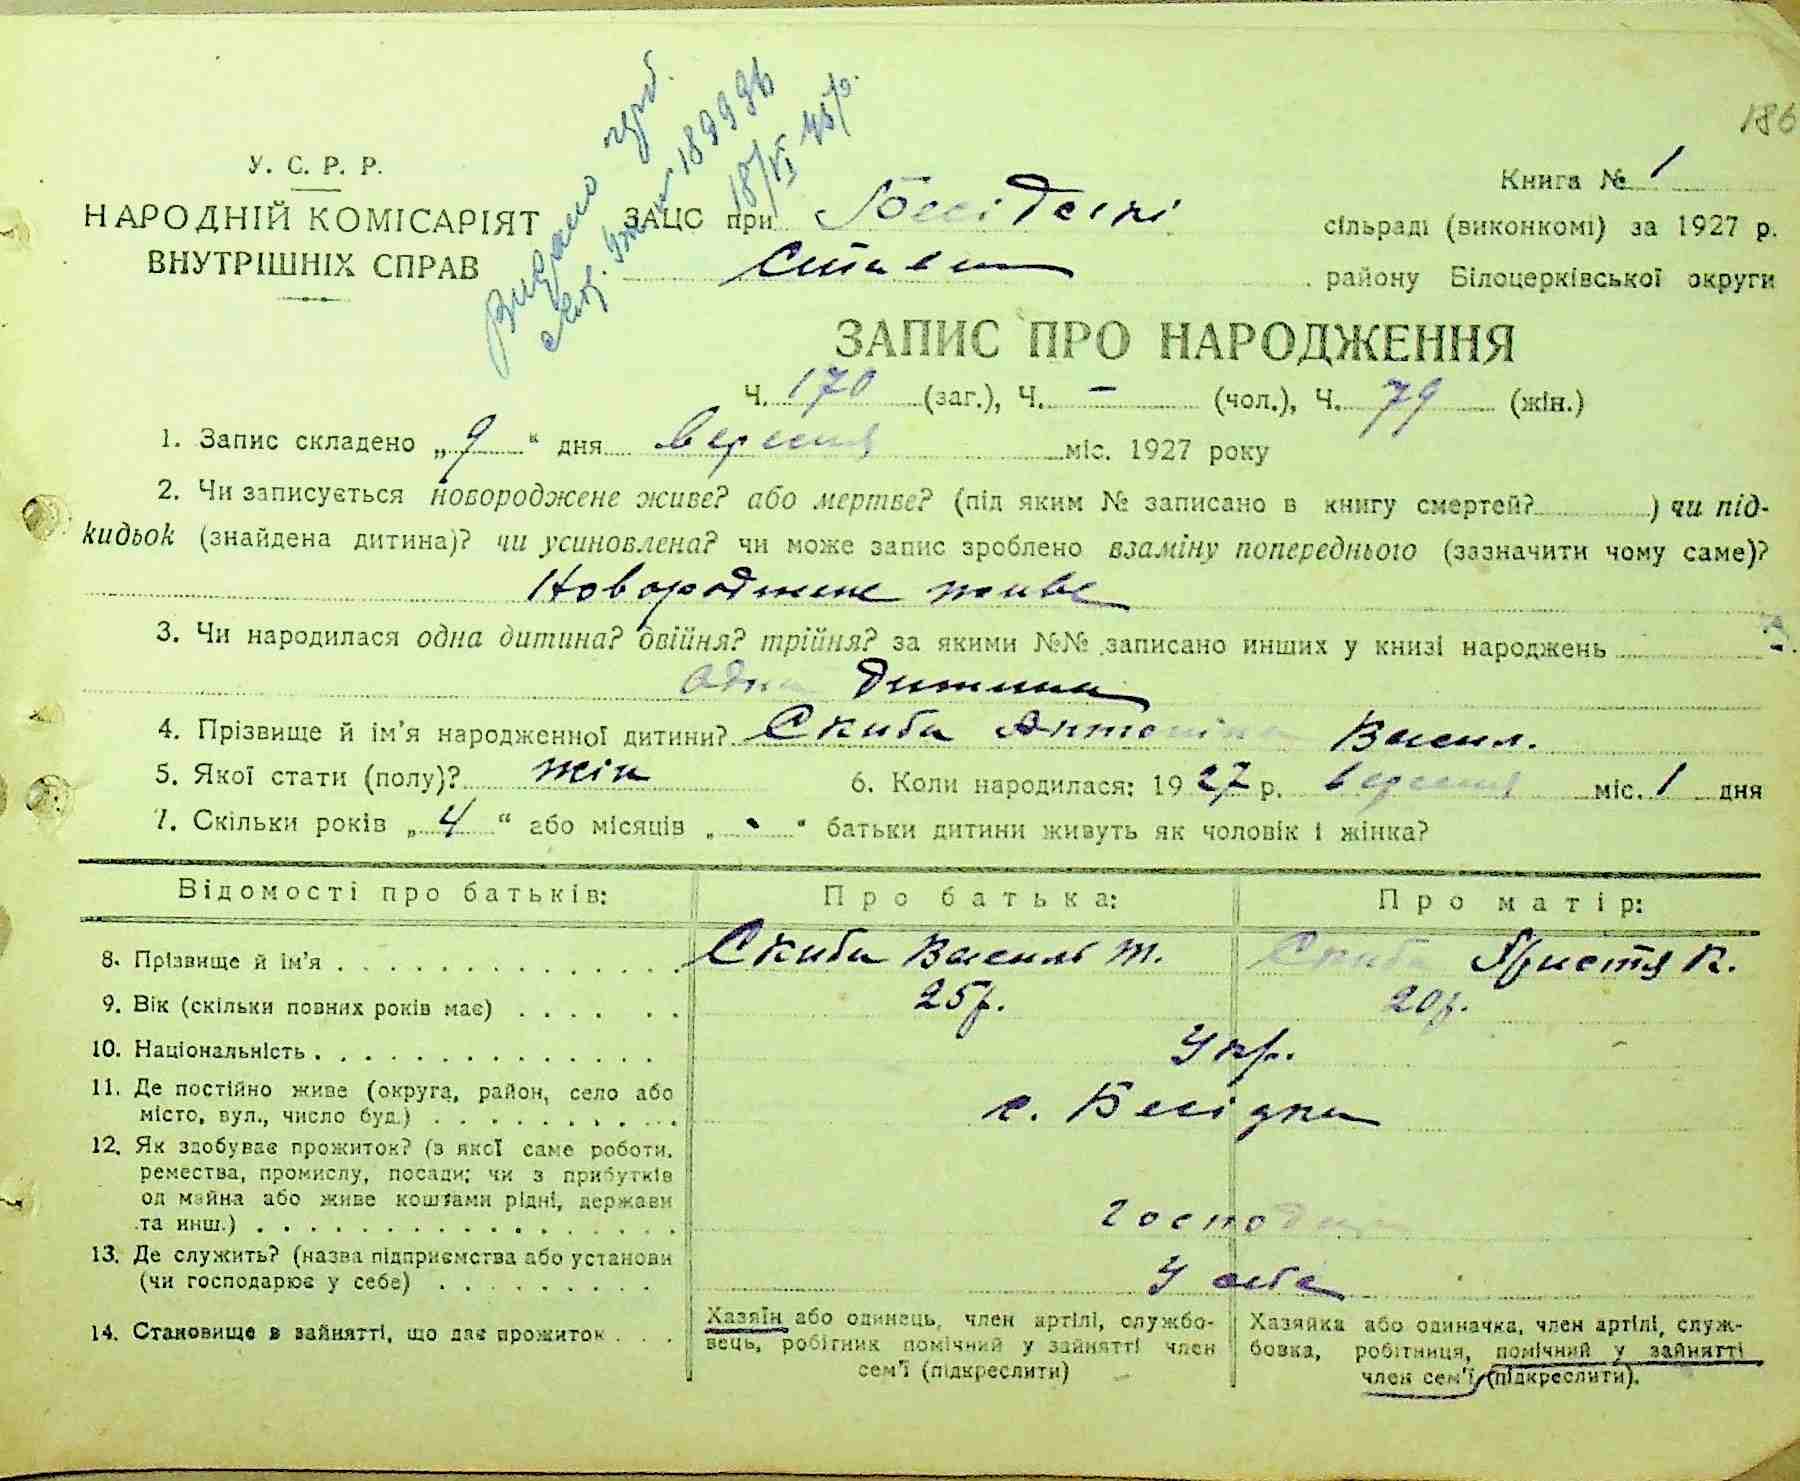 186
Видано
18/VI 45 р.
У. С. Р. Р.
НАРОДНІЙ КОМІСАРІЯТ
ВНУТРІШНІХ СПРАВ
Книга № 1
ЗАЦС при Бесідскі сільраді (виконкомі) за 1927 р.
Ставищ району Білоцерківської округи
ЗАПИС ПРО НАРОДЖЕННЯ
Ч. 170 (заг.), Ч. – (чол.), Ч. 79 (жін.)
1. Запис складено „9“ дня вересня міс. 1927 року
2. Чи записується новороджене живе? або мертве? (під яким № записано в книгу смертей? ) чи під-
кидьок (знайдена дитина)? чи усиновлена? чи може запис зроблено взаміну попереднього (зазначити чому саме)?
Новороджене живе
3. Чи народилася одна дитина? двійня? трійня? за якими №№ записано инших у книзі народжень
Одна дитина
4. Прізвище й ім'я народженної дитини? Скиба Антоніна Васил.
5. Якої стати (полу)? жін 6. Коли народилася: 1927 р. вересня міс. 1 дня
7. Скільки років „4“ або місяців „-“ батьки дитини живуть як чоловік і жінка?
Відомості про батьків: Про батька: Про матір:
8. Прізвище й ім'я . . . . Скиба Василь Т. Скиба Христя К.
9. Вік (скільки повних років має) . . . . 25 р. 20 р.
10. Національність . . . . Укр.
11. Де постійно живе (округа, район, село або
місто, вул., число буд.) . . . . с. Бесідка
12. Як здобуває прожиток? (з якої саме роботи,
ремества, промислу, посади; чи з прибутків
од майна або живе коштами рідні, держави
та инш.) . . . . господар
13. Де служить? (назва підприємства або установи
(чи господарює у себе) . . . . У себе
14. Становище в зайнятті, що дає прожиток . . .
Хазяїн або одинець, член артілі, службо-
вець, робітник помічний у зайнятті член
сем'ї (підкреслити)
Хазяйка або одиначка, член артілі, служ-
бовка, робітниця, помічний у зайнятті
член сем'ї (підкреслити).